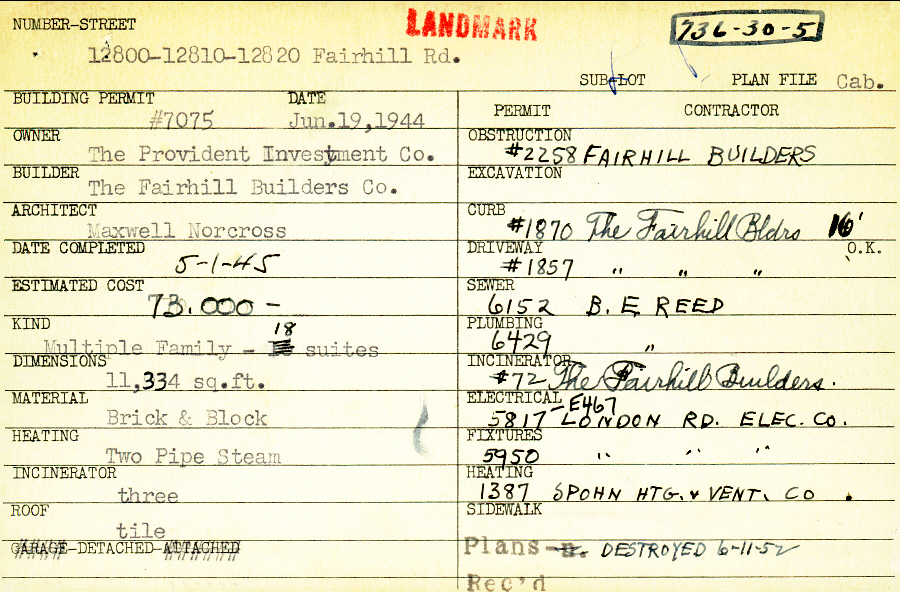 NUMBER-STREET
LANDMARK
736-30-5
12800-12810-12820 Fairhill Rd.
SUBLOT PLAN FILE Cab.
BUILDING PERMIT DATE
#7075 Jun.19,1944
OWNER
The Provident Investment Co.
BUILDER
The Fairhill Builders Co.
ARCHITECT
Maxwell Norcross
DATE COMPLETED
5-1-45
ESTIMATED COST
73.000-
KIND
18
Multiple Family - suites
DIMENSIONS
11,334 sq.ft.
MATERIAL
Brick & Block
HEATING
Two Pipe Steam
INCINERATOR
three
ROOF
tile
GARAGE-DETACHED-ATTACHED
PERMIT CONTRACTOR
OBSTRUCTION
#2258 FAIRHILL BUILDERS
EXCAVATION
CURB
#1870 The Fairhill Bldrs 16'
DRIVEWAY O.K.
#1857 " " "
SEWER
6152 B. E. REED
PLUMBING
6429 "
INCINERATOR
#72 The Fairhill Builders.
ELECTRICAL - E467
5817 LONDON RD. ELEC. CO.
FIXTURES
5950 " " "
HEATING
1387 SPOHN HTG. & VENT. CO.
SIDEWALK
Plans DESTROYED 6-11-52
Rec'd